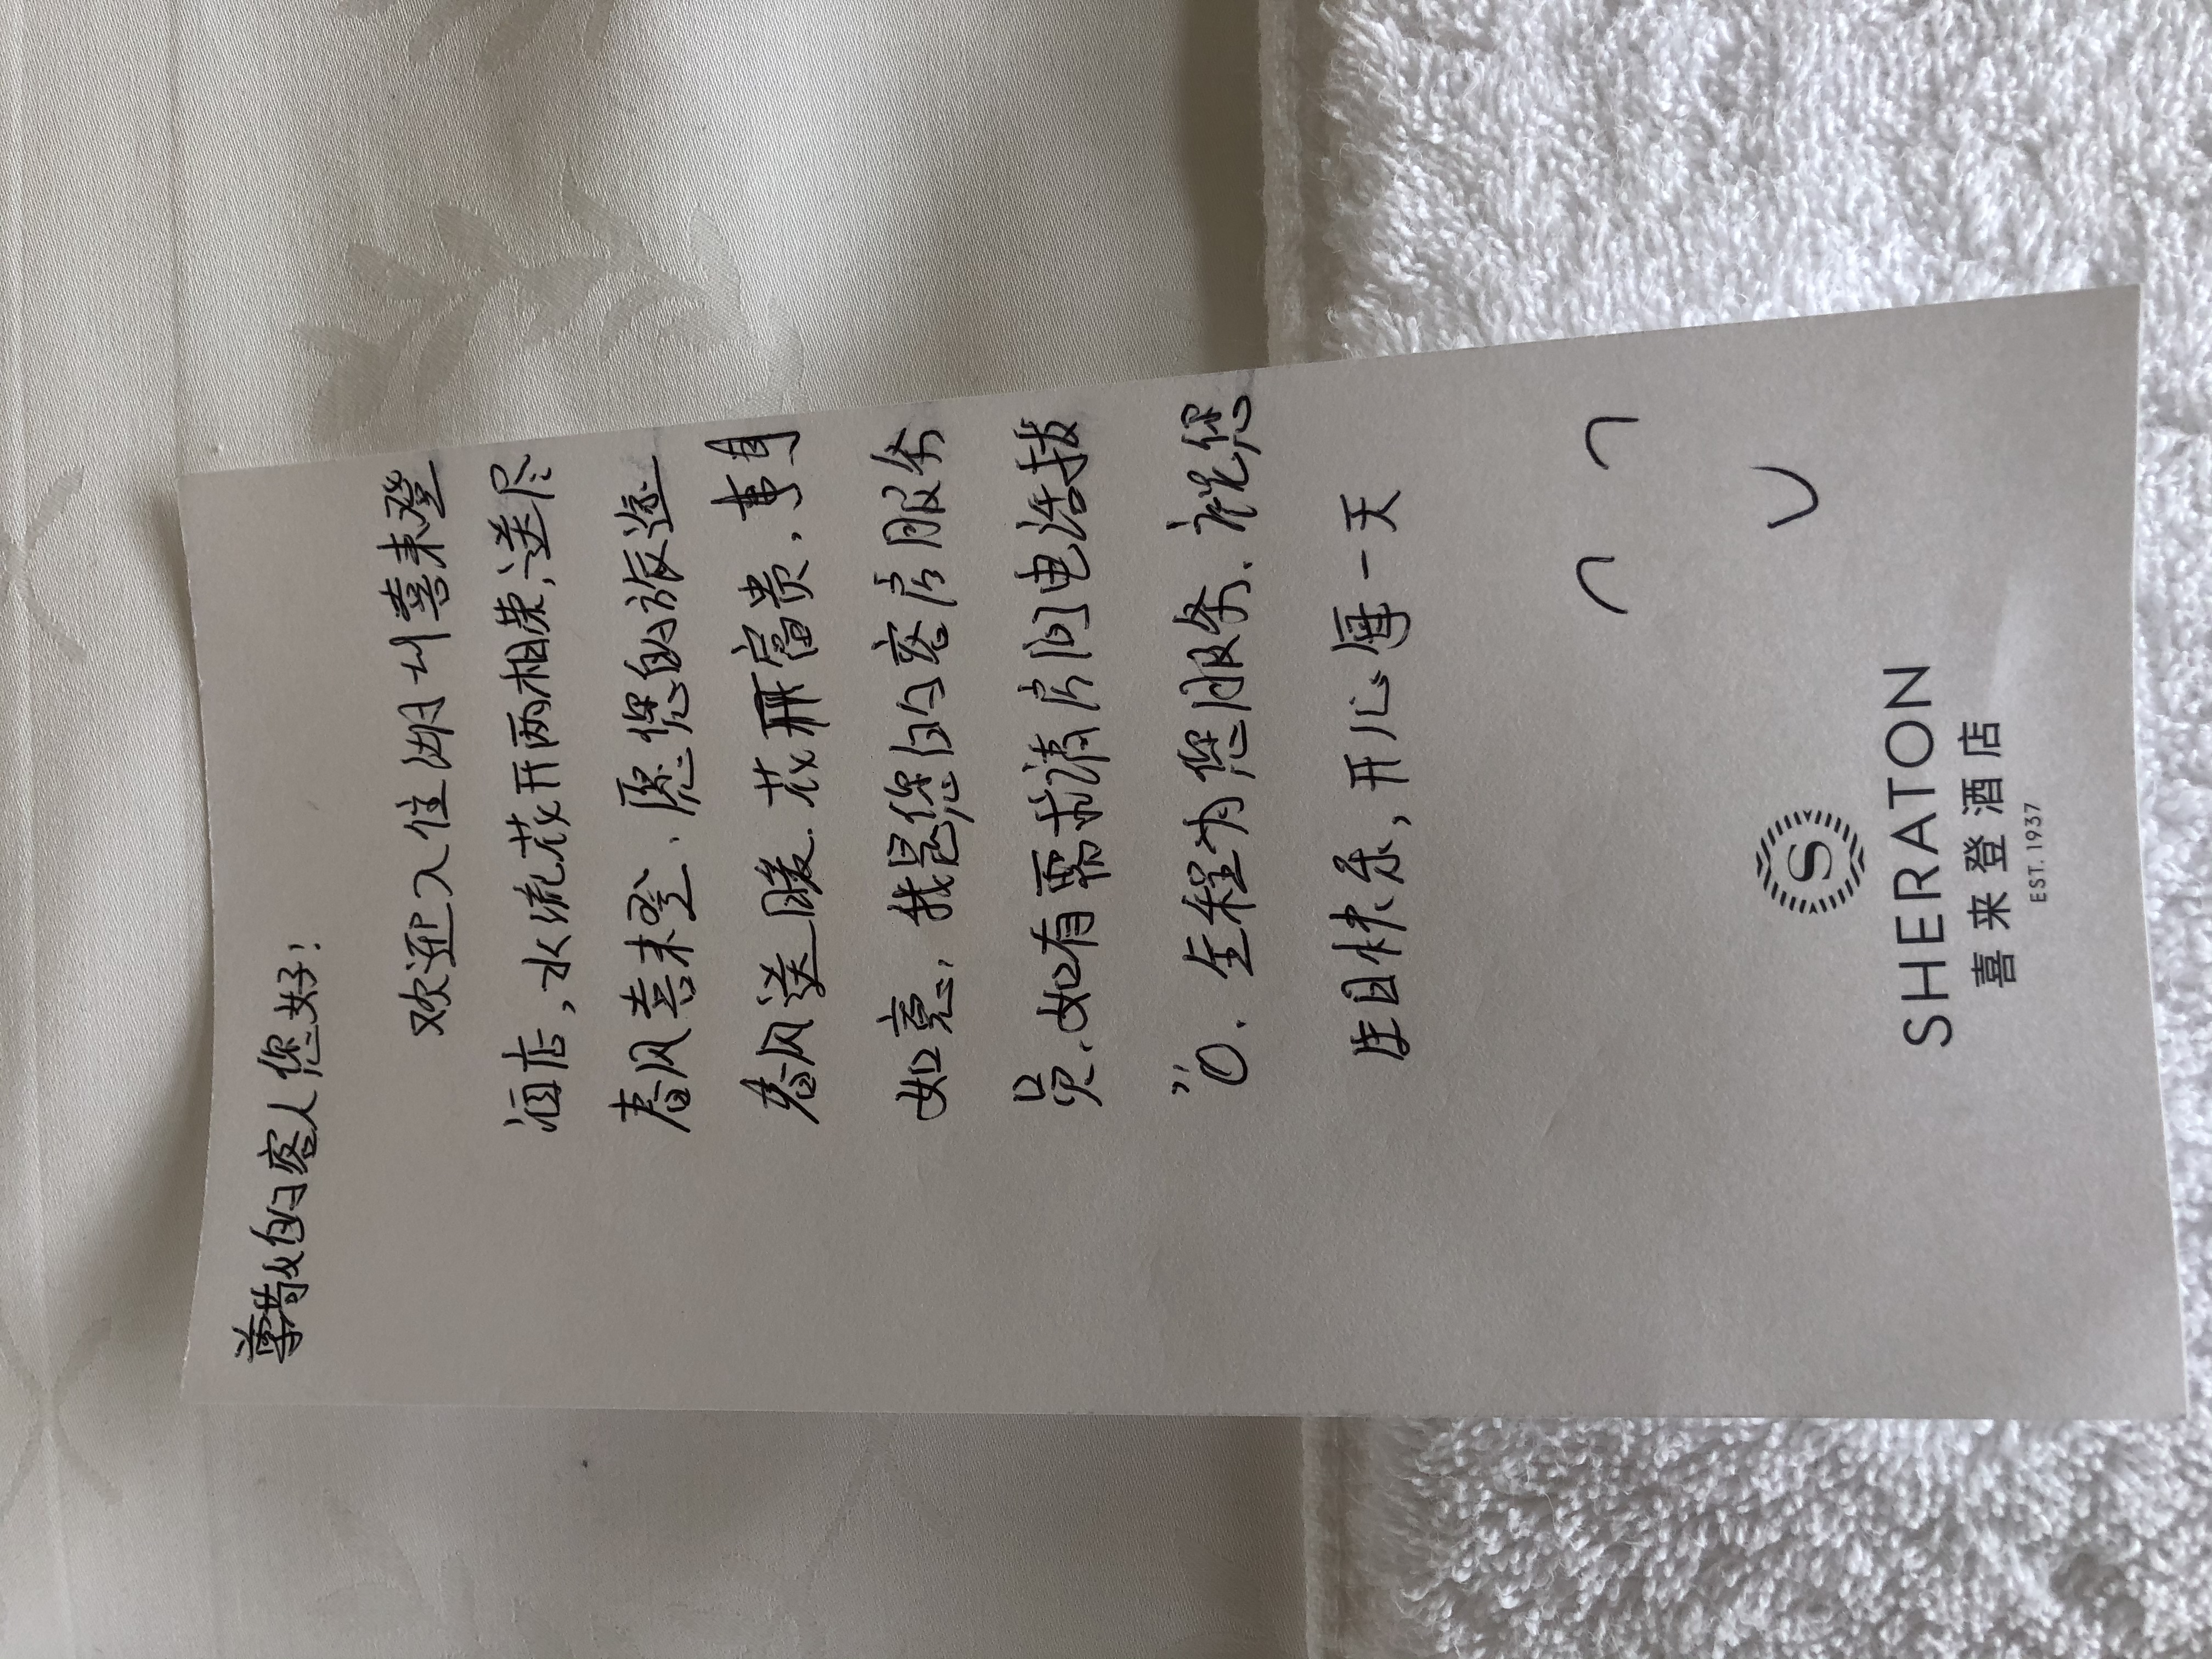 尊敬的客人您好！
欢迎入住湖州喜来登
酒店，水流花开两相荣，送尽
春风喜来登，愿您的旅途
春风送暖.花开富贵，事事
如意，我是您的客房服务
员，如有需求请房间电话拔
"0.全程为您服务.祝您
生日快乐，开心每一天
S
SHERATON
喜来登酒店
EST. 1937